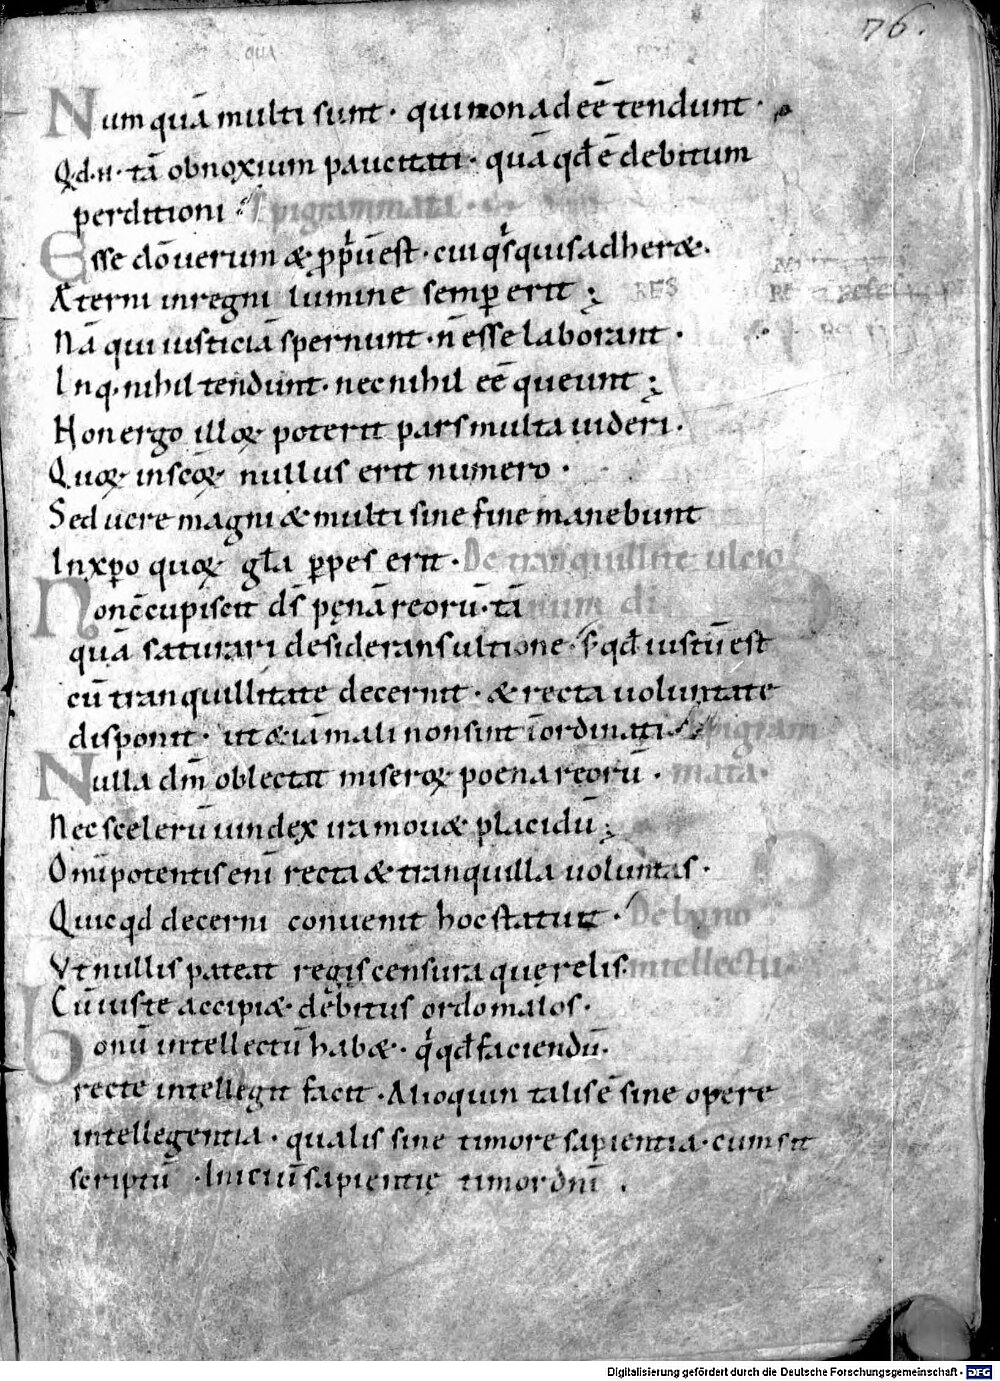 76.
Num quā multi sunt · qui non ad eē tendunt ·
Qd · n · tā obnoxium paucitati · quā qd ē debitum
perditioni Epigrammata ·
Esse dō uerum & ppuē est · cui qs quis adheræ ·
Æterni in regni lumine semp erit ;
RES
Nā qui iusticiā spernunt · n̄ esse laborant ·
In q · nihil tendunt · nec nihil eē queunt ;
Hon ergo illoꝝ poterit pars multa uideri ·
Quoꝝ in secꝝ nullus erit numero ·
Sed uere magni & multi sine fine manebunt
In xp̄o quoꝝ gla ppes erit · De tranquillitate ulcio
Non cupiscit ds̄ pęnā reorū · tā num di
quā saturari desiderans ultione · s; qd iustū est
cū tranquillitate decernit · & recta uoluntate
disponit · ut & iā mali non sint īordinati · Epigram
Nulla dm̄ oblectat miseroꝝ poena reorū · mata ·
Nec scelerū uindex ira mouæ placidū ;
Omīpotentis enī recta & tranquilla uoluntas ·
Quicqd decerni conuenit hoc statuit · De bono
Vt nullis pateat regis censura querelis · intellectu ·
Cū iuste accipiæ debitus ordo malos ·
bonū intellectū habæ · q̇ qd faciendū ·
recte intellegit facit · Alioquin talis ē sine opere
intellegentia · qualis sine timore sapientia · cum sit
scriptū · Iniciū sapientię timor dnī .
Digitalisierung gefördert durch die Deutsche Forschungsgemeinschaft - DFG